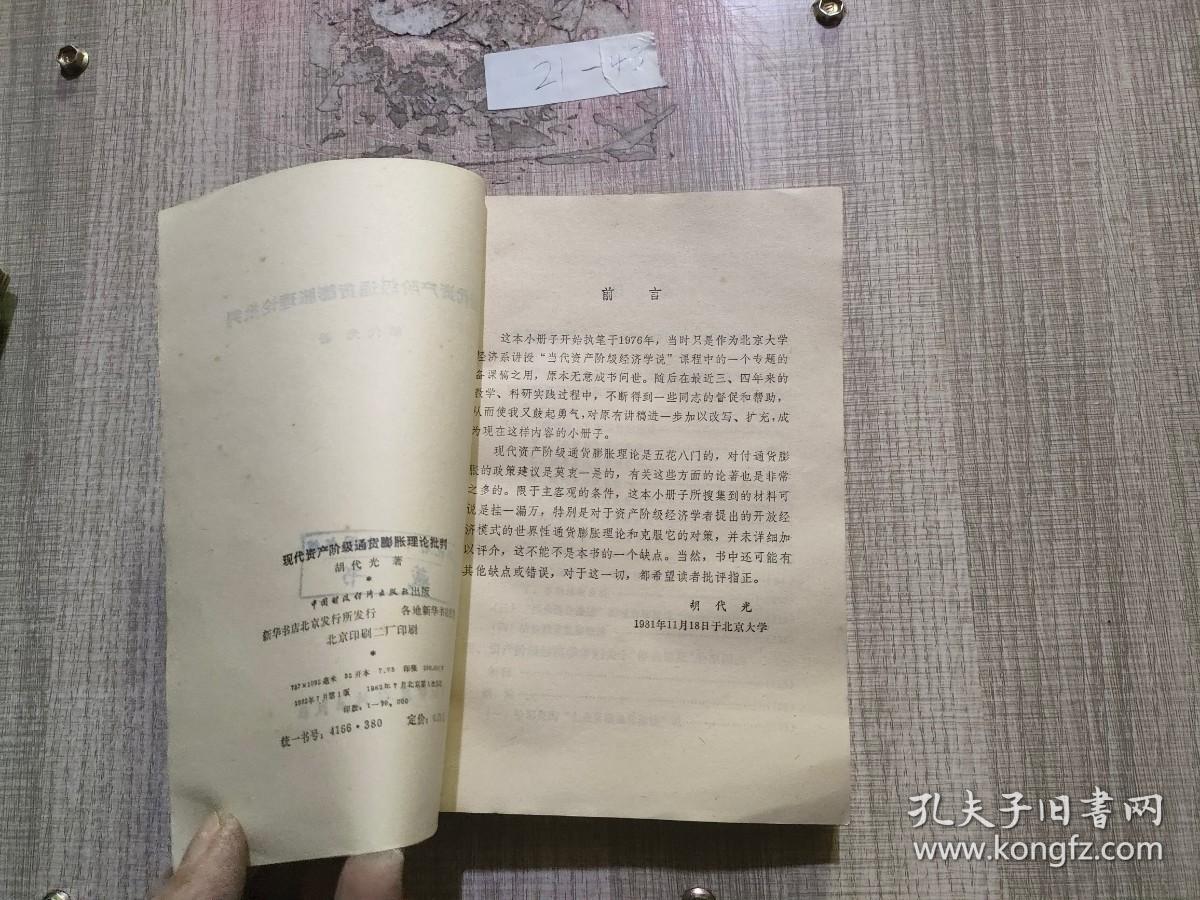 21-48
现代资产阶级通货膨胀理论批判
胡代光 著
*
中国财政经济出版社出版
新华书店北京发行所发行 各地新华书店
北京印刷二厂印刷
*
787×1092毫米 32开本 7.75 印张
1982年7月第1版 1982年7月北京第1次
印数:1—
统一书号:4166·380 定价:
前 言
这本小册子开始执笔于1976年,当时只是作为北京大学
经济系讲授“当代资产阶级经济学说”课程中的一个专题的
备课稿之用,原本无意成书问世。随后在最近三、四年来的
教学、科研实践过程中,不断得到一些同志的督促和帮助,
从而使我又鼓起勇气,对原有讲稿进一步加以改写、扩充,成
为现在这样内容的小册子。
现代资产阶级通货膨胀理论是五花八门的,对付通货膨
胀的政策建议是莫衷一是的,有关这些方面的论著也是非常
之多的。限于主客观的条件,这本小册子所搜集到的材料可
说是挂一漏万,特别是对于资产阶级经济学者提出的开放经
济模式的世界性通货膨胀理论和克服它的对策,并未详细加
以评介,这不能不是本书的一个缺点。当然,书中还可能有
其他缺点或错误,对于这一切,都希望读者批评指正。
胡 代 光
1981年11月18日于北京大学
孔夫子旧書网
www.kongfz.com